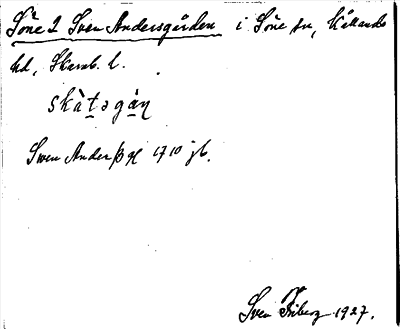 Söne 2 Sven Andersgården i Söne sn, Kållands
hd, Skarab. l.
skàt̠əgàṇ
Swen Anderßg 1710 jb.
Sven Friberg 1927.